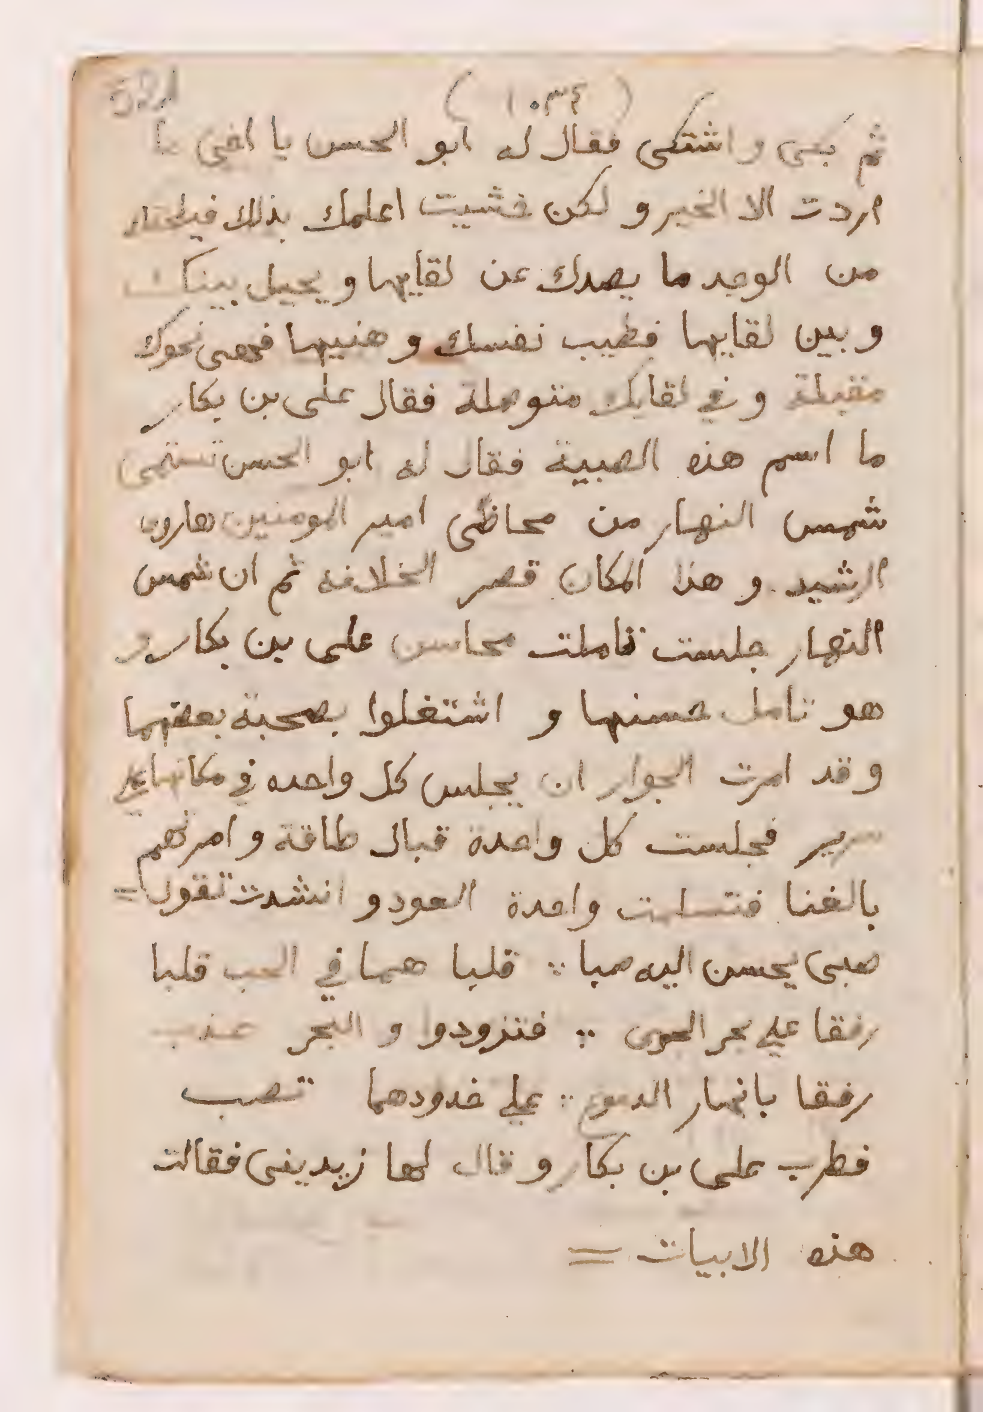 (١٠٣٤)
ثم بكى و اشتكى فقال له ابو الحسن يا اخي ما
اردت الا الخير و لكن خشيت اعلمك بذلك فيلحقك
من الوجد ما يصدك عن لقايها و يحيل بينك
و بين لقايها فطيب نفسك و هنيها فهى نحوك
مقبلة و في لقايك متوصلة فقال على بن بكار
ما اسم هذه الصبية فقال له ابو الحسن تستمى
شمس النهار من محاظى امير المومنين هارون
الرشيد و هذا المكان قصر الخلافه ثم ان شمس
النهار جلست تاملت محاسن على بن بكار و
هو تامل حسنها و اشتغلوا بصحبة بعضهما
و قد امرت الجوار ان يجلس كل واحده في مكانها على
سرير فجلست كل واحدة قبال طاقة و امرتهم
بالغنا فتسلمت واحدة العود و انشدت تقول =
صبى يحسن اليه صبا ∴ قلبا هما في الحب قلبا
رفقا على بحر الهوى ∴ فتزودوا و البحر عذب
رفقا بانهار الدموع ∴ على خدودهما تصب
فطرب على بن بكار و قال لها زيدينى فقالت
هذه الابيات =